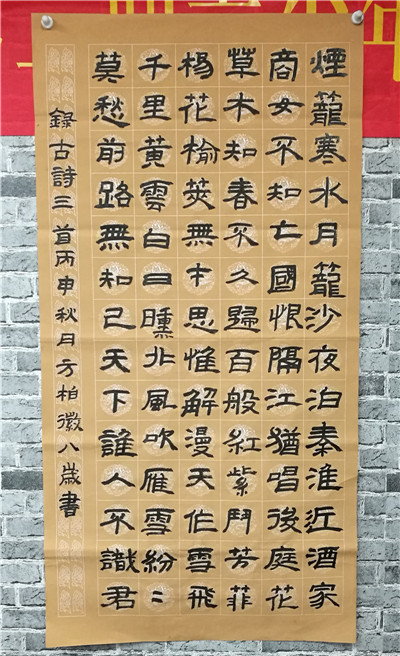 煙籠寒水月籠沙夜泊秦淮近酒家
商女不知亡國恨隔江猶唱後庭花
草木知春不久歸百般紅紫鬥芳菲
楊花榆莢無才思惟解漫天作雪飛
千里黃雲白日曛北風吹雁雪紛〻
莫愁前路無知己天下誰人不識君
錄古詩三首丙申秋月方柏徽八歲書